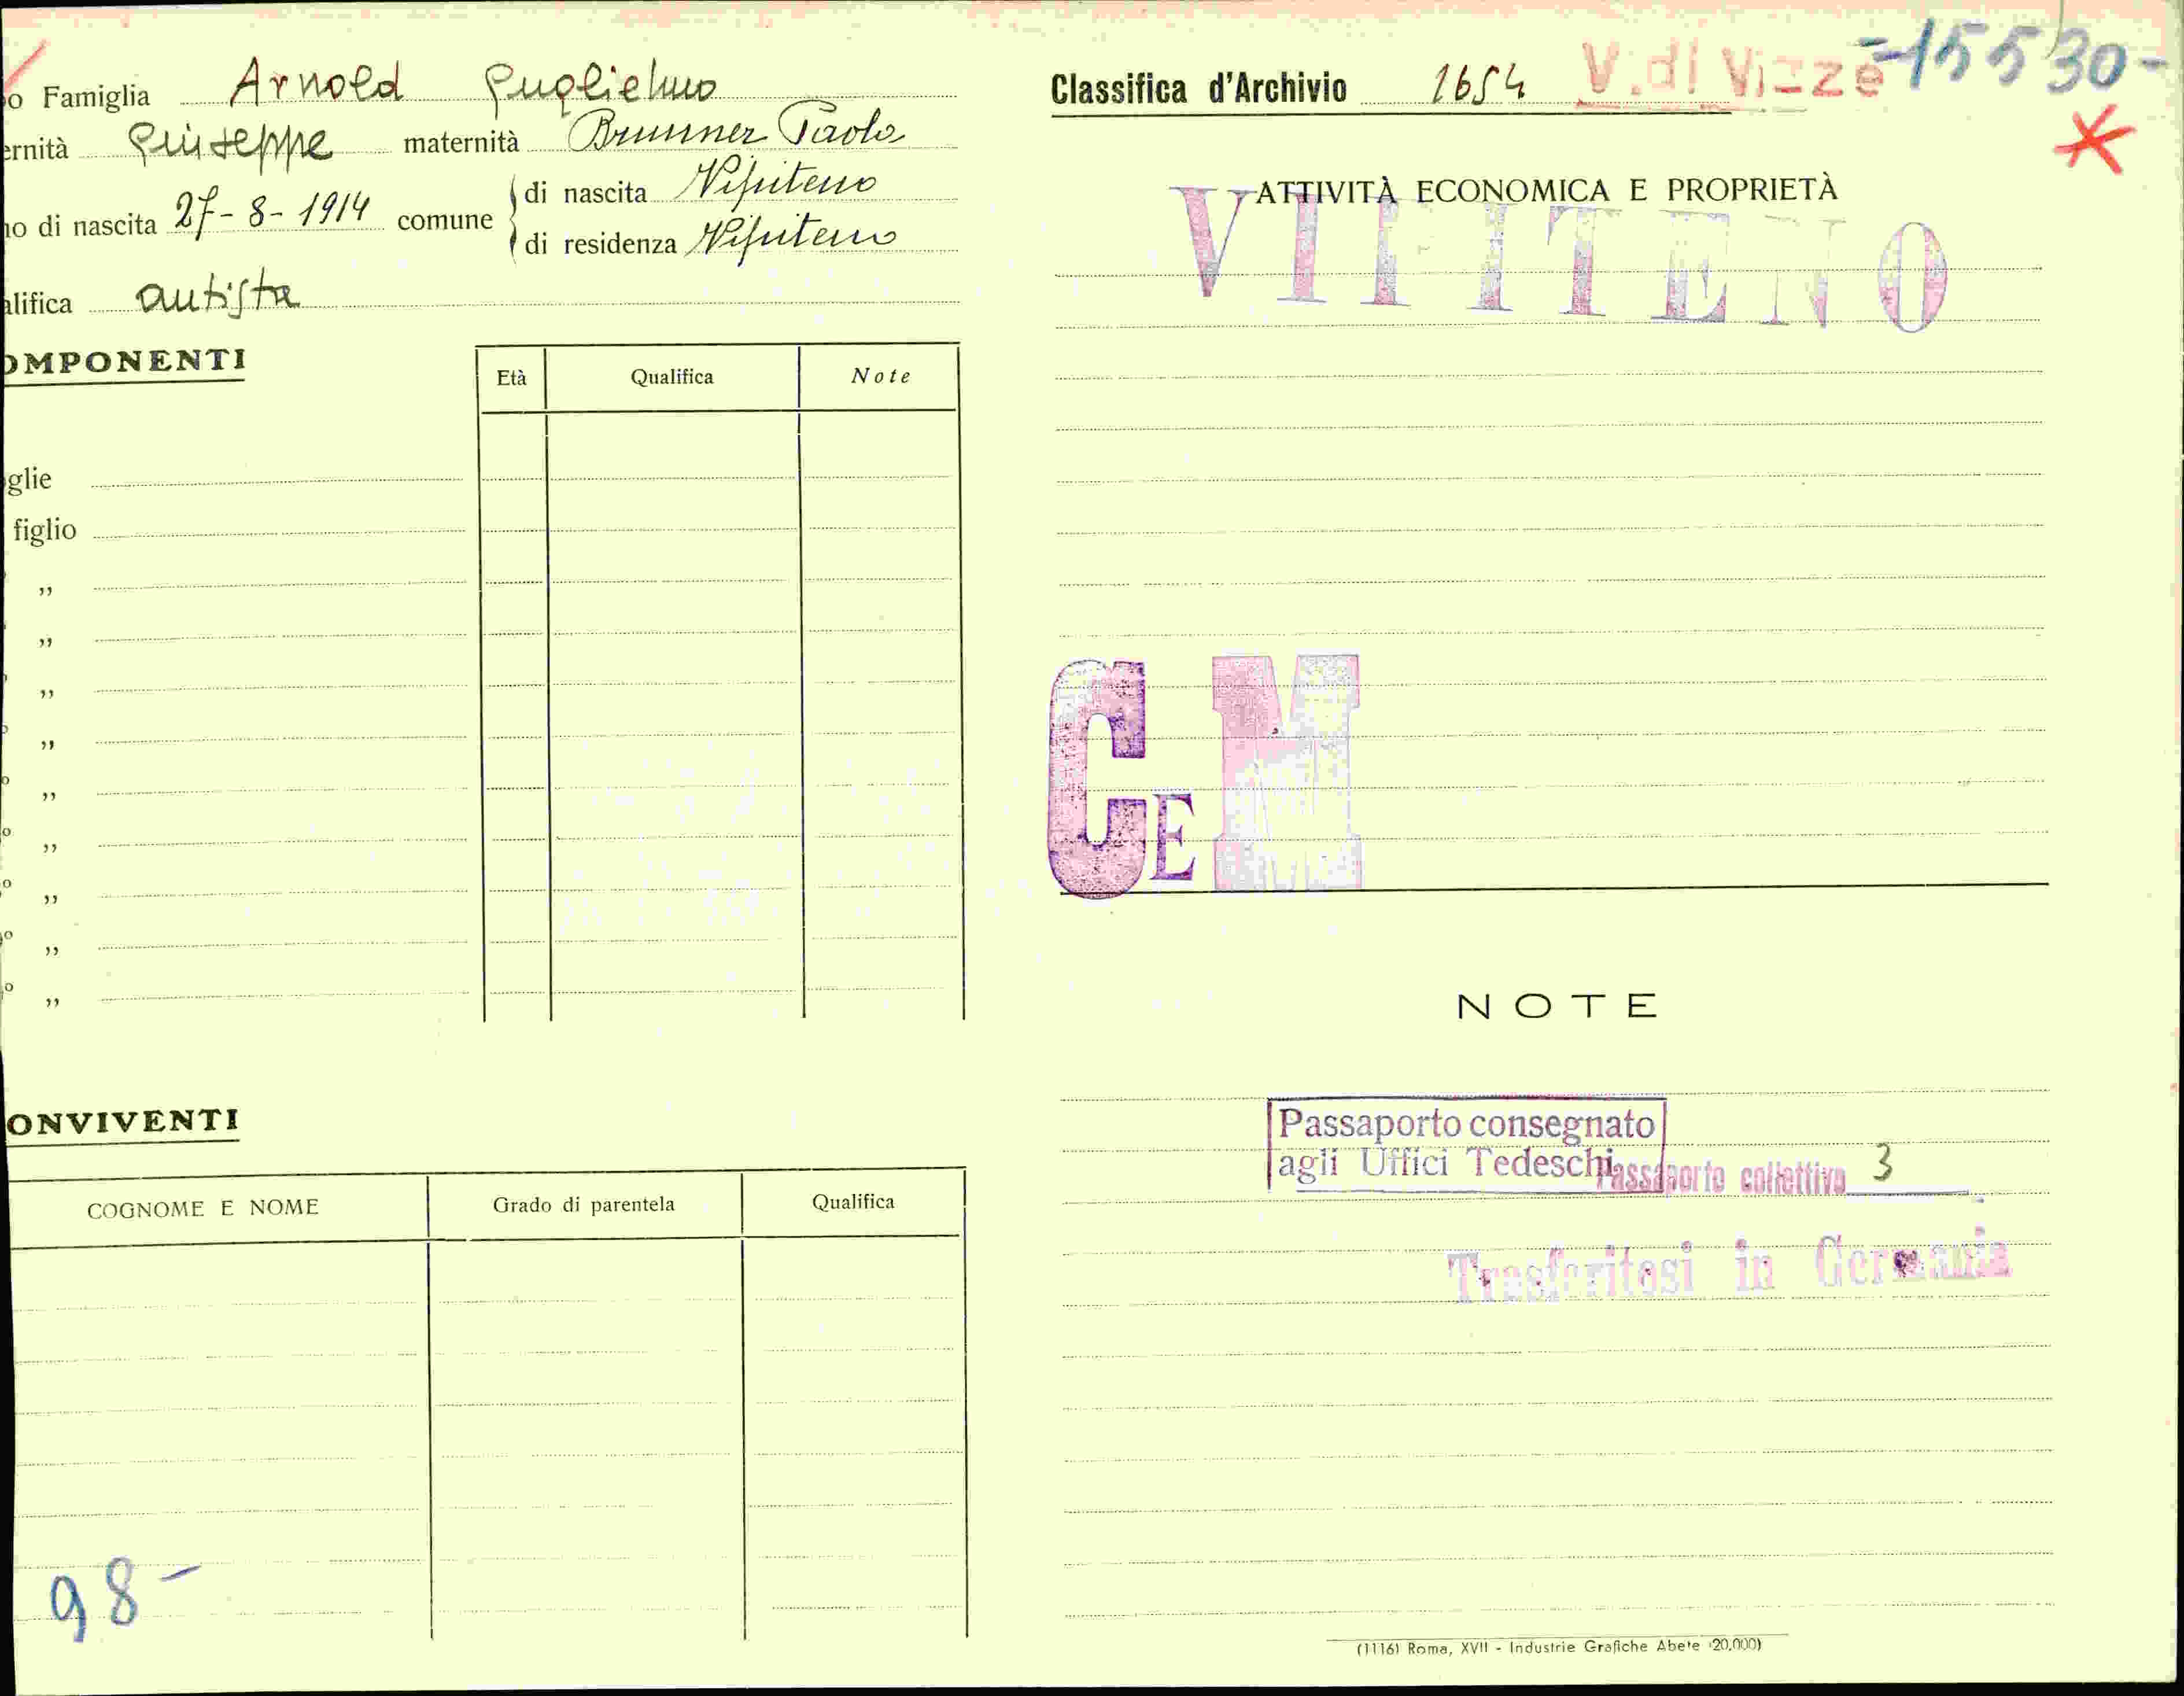 o Famiglia Arnold Guglielmo
ernità Giuseppe maternità Brunner Paola
no di nascita 27-8-1914 comune di nascita Vipiteno
di residenza Vipiteno
alifica autista
OMPONENTI
Età Qualifica Note
glie
figlio
„
„
„
„
„
„
„
„
„
ONVIVENTI
COGNOME E NOME Grado di parentela Qualifica
98-
Classifica d'Archivio 1654 V.di Vizze -15530-
ATTIVITÀ ECONOMICA E PROPRIETÀ
VIPITENO
CEM
NOTE
Passaporto consegnato
agli Uffici Tedeschi
Passaporto collettivo 3
Trasferitosi in Germania
(1116) Roma, XVII - Industrie Grafiche Abete (20.000)